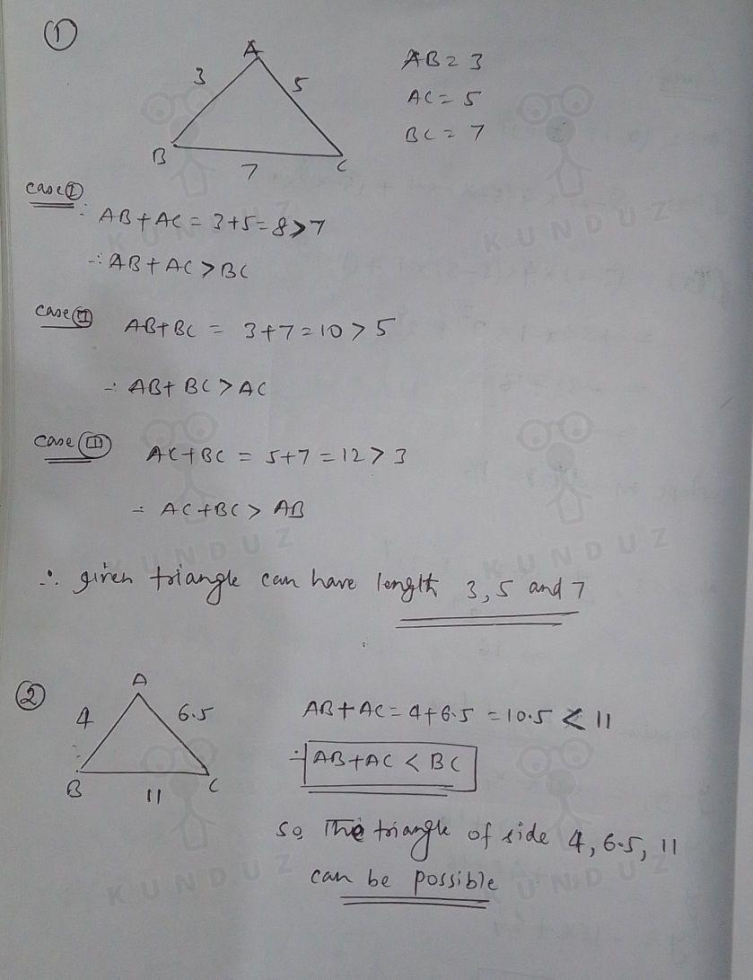 ①
A
3
5
B
7
C
AB = 3
AC = 5
BC = 7
Case Ⅰ
: AB + AC = 3+5 = 8 > 7
∴ AB + AC > BC
Case Ⅱ
AB + BC = 3+7 = 10 > 5
∴ AB + BC > AC
Case Ⅲ
AC + BC = 5+7 = 12 > 3
∴ AC + BC > AB
∴ given triangle can have length 3, 5 and 7
②
A
4
6.5
B
11
C
AB + AC = 4+6.5 = 10.5 < 11
∴ AB + AC < BC
So, The triangle of side 4, 6.5, 11
can be possible
KUNDUZ
KUNDUZ
KUNDUZ
KUNDUZ
KUNDUZ
KUNDUZ